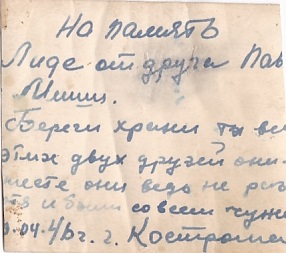 На память
Лиде от друга Пав
Миши.
Береги храни ты
этих двух друзей они
месте они ведь не
и были совсем чужи
.04.46г. г. Кострома